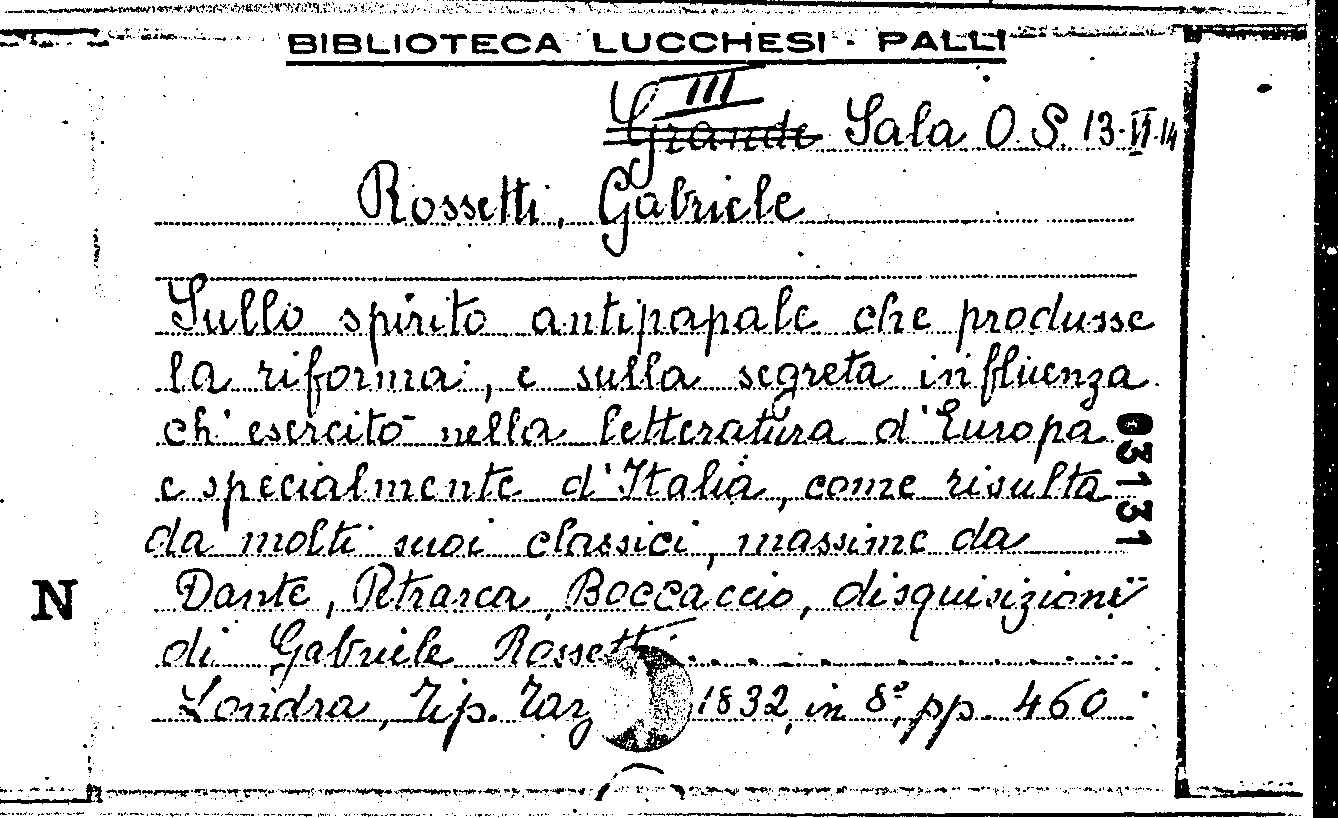 BIBLIOTECA LUCCHESI - PALLI
III
Grande Sala O. S. 13-II-14
Rossetti, Gabriele
Sullo spirito antipapale che produsse
la riforma, e sulla segreta influenza
ch'esercitò nella letteratura d'Europa
e specialmente d'Italia, come risulta
da molti suoi classici, massime da
Dante, Petrarca, Boccaccio, disquisizioni
di Gabriele Rossetti
Londra, Tip. 1832, in 8º, pp. 460
03131
N